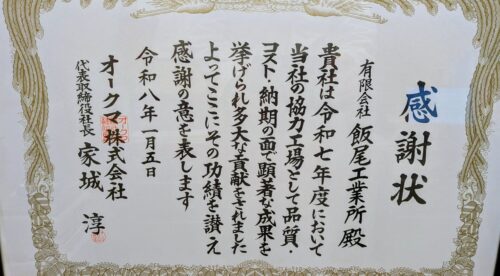 感謝状
有限会社 飯尾工業所 殿
貴社は令和七年度において
当社の協力工場として品質・
コスト・納期の面で顕著な成果を
挙げられ多大な貢献をされました
よってここにその功績を讃え
感謝の意を表します
令和八年一月五日
オークマ株式会社
代表取締役社長 家城 淳